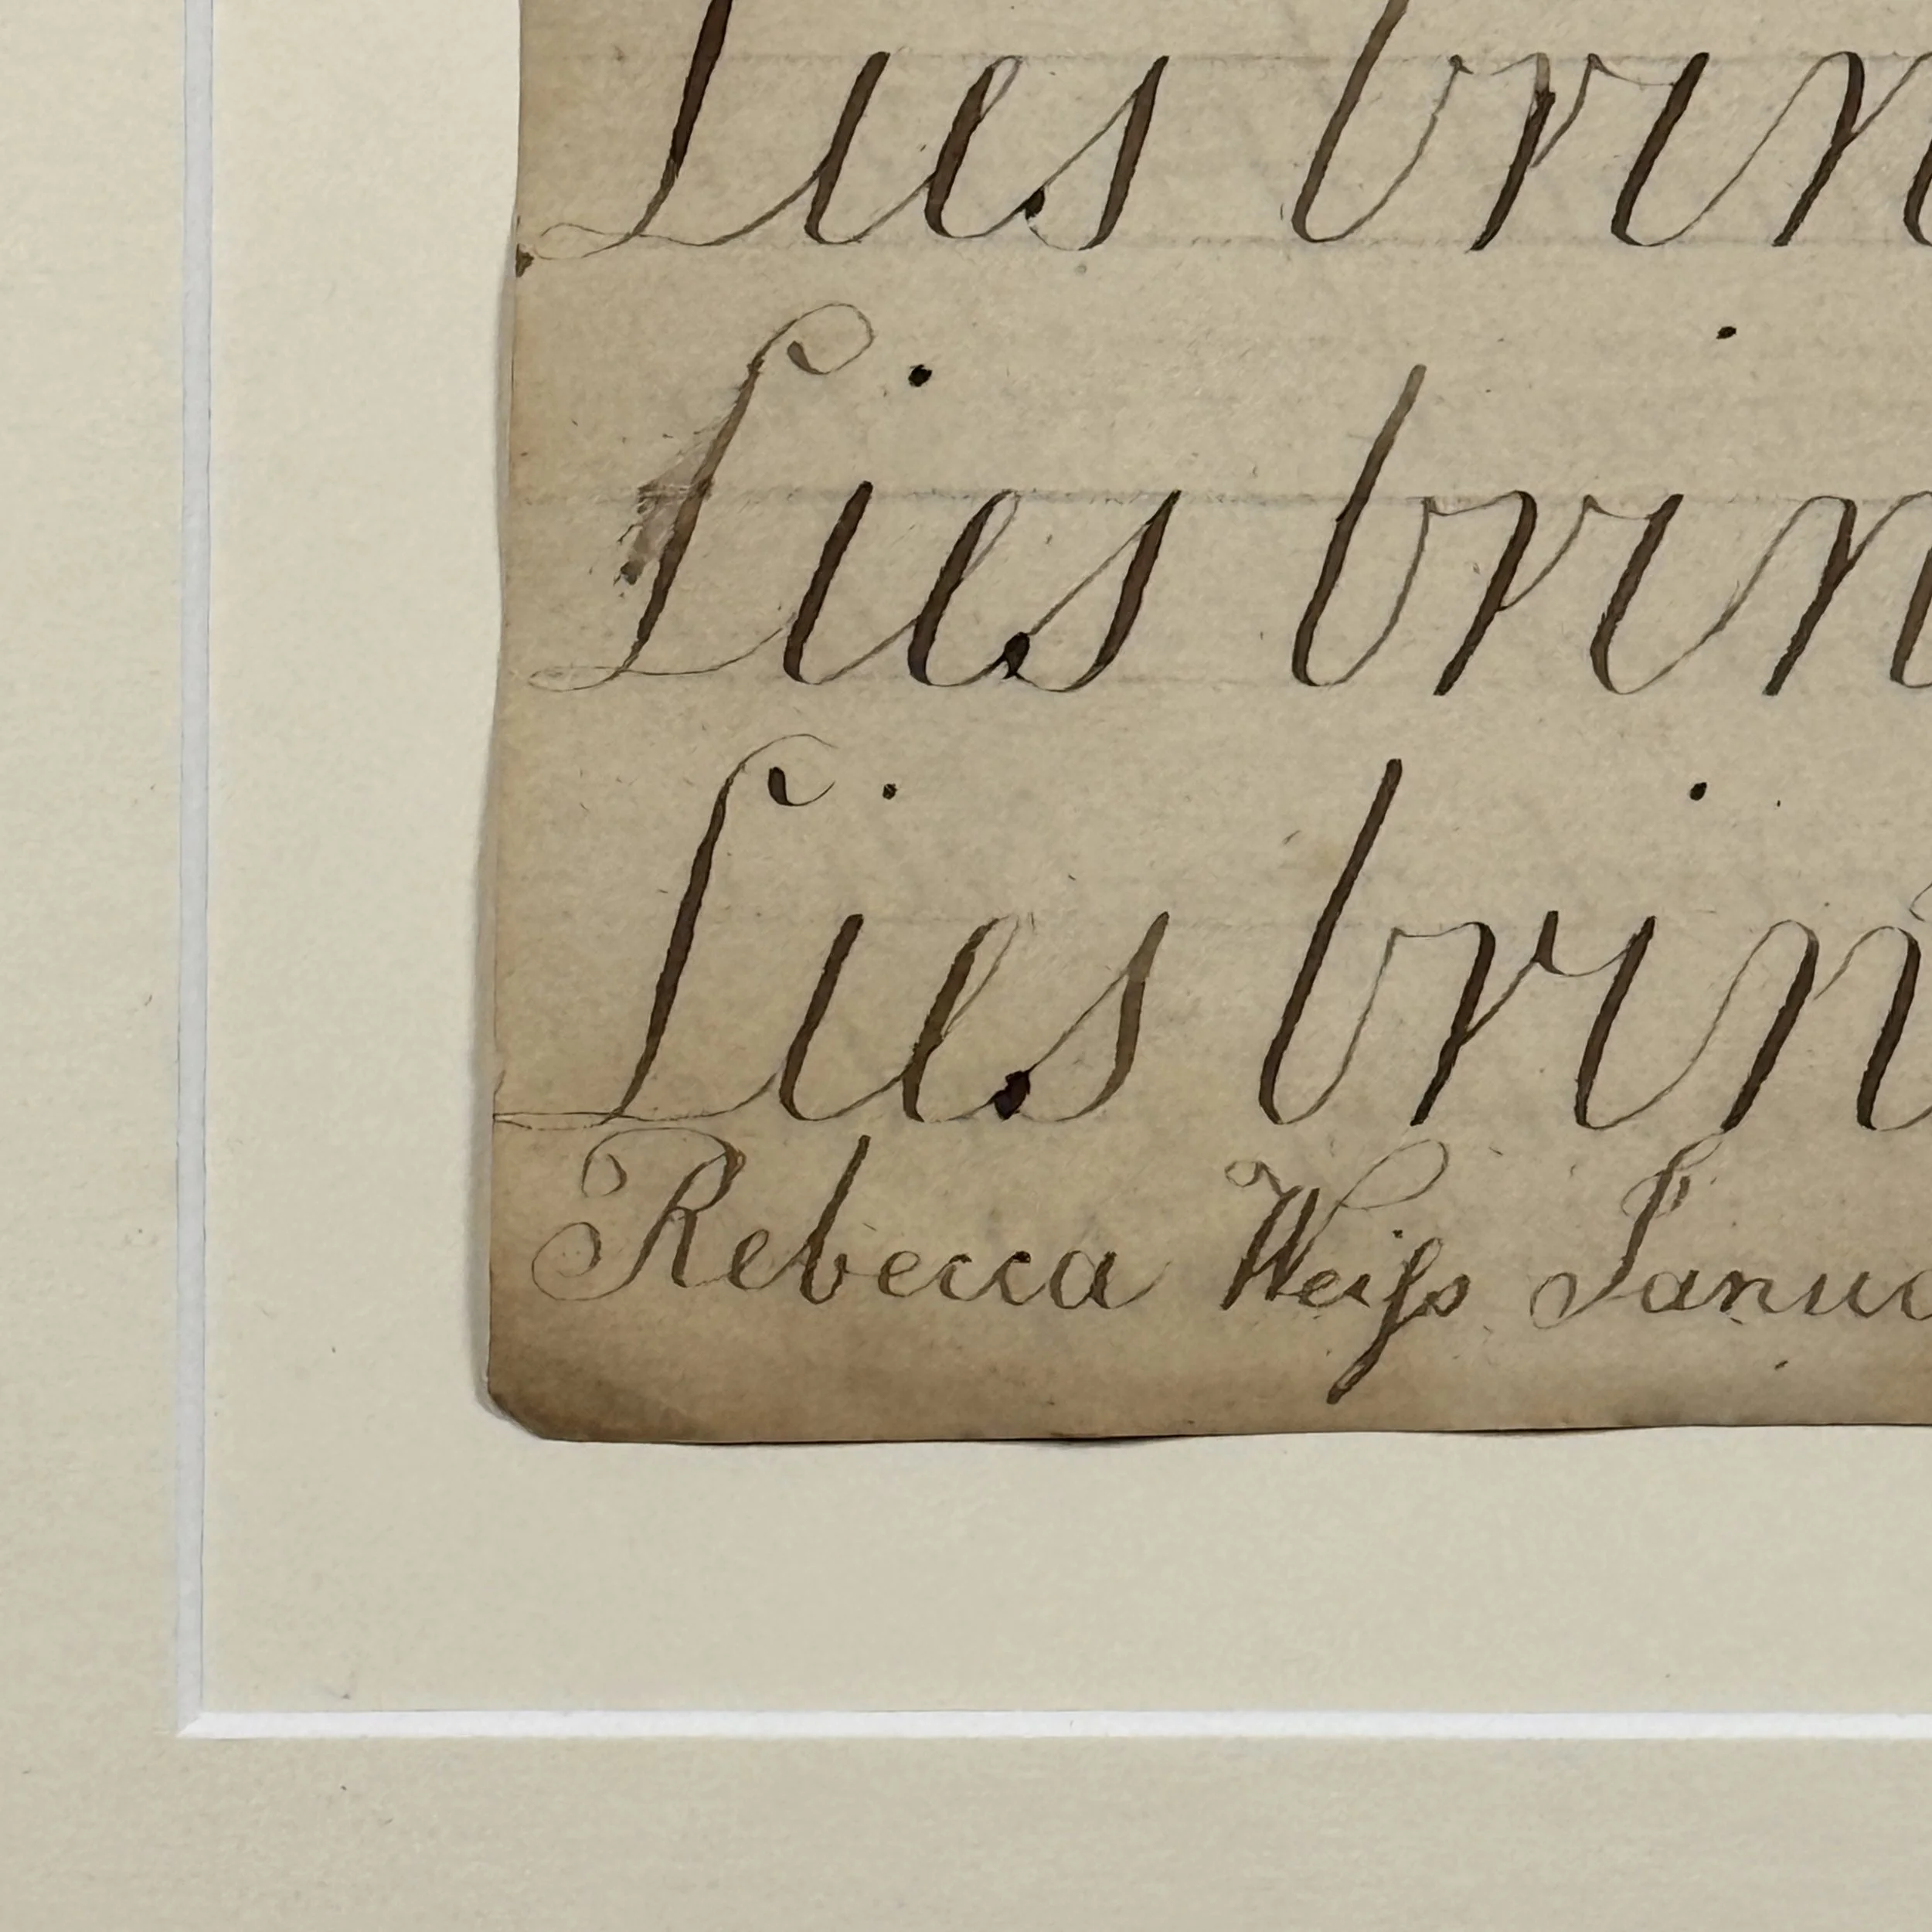 Lies brin
Lies brin
Lies brin
Rebecca Weiſs Janua